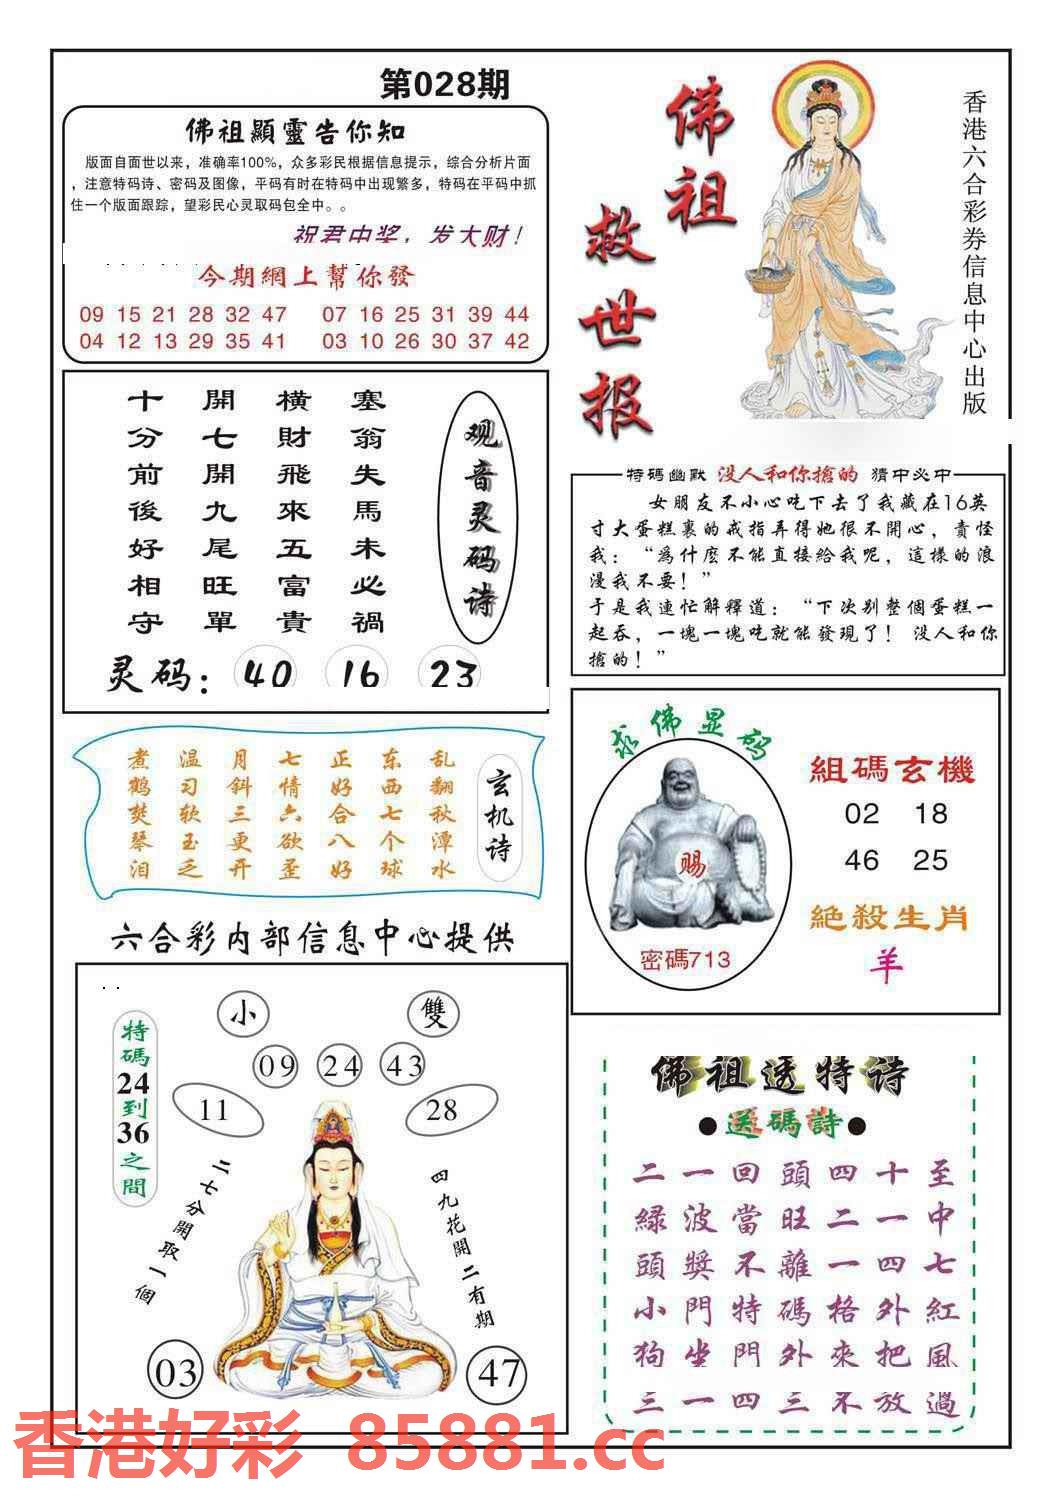 第028期
佛祖顯靈告你知
版面自面世以来，准确率100%，众多彩民根据信息提示，综合分析片面
，注意特码诗、密码及图像，平码有时在特码中出现繁多，特码在平码中抓
住一个版面跟踪，望彩民心灵取码包全中。。
祝君中奖，发大财！
今期網上幫你發
09 15 21 28 32 47 07 16 25 31 39 44
04 12 13 29 35 41 03 10 26 30 37 42
佛祖
救世报
香港六合彩券信息中心出版
观音灵码诗
塞翁失馬未必禍
橫財飛來五富貴
開七開九尾旺單
十分前後好相守
灵码： 40 16 23
特碼幽默 没人和你搶的 猜中必中
女朋友不小心吃下去了我藏在16英
寸大蛋糕裏的戒指弄得她很不開心，責怪
我：“為什麼不能直接給我呢，這樣的浪
漫我不要！”
于是我連忙解釋道：“下次别整個蛋糕一
起吞，一塊一塊吃就能發現了！ 没人和你
搶的！”
玄机诗
乱翻秋潭水
东西七个球
正好合八好
七情六欲歪
月斜三更开
温习软玉乏
煮鹤焚琴泪
求佛显码
赐
密碼713
組碼玄機
02 18
46 25
絕殺生肖
羊
六合彩内部信息中心提供
特碼24到36之間
小 雙
09 24 43
11 28
二七分開取一個
四九花開二有期
03 47
佛祖透特诗
●送碼詩●
二一回頭四十至
緑波當旺二一中
頭獎不離一四七
小門特碼格外紅
狗坐門外來把風
三一四三不放過
香港好彩 85881.cc